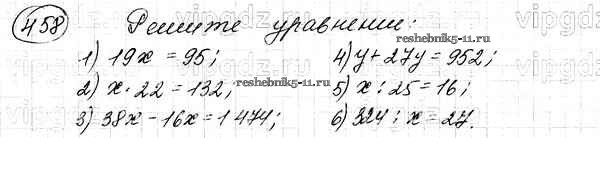 458 Решите уравнении:
1) 19x = 95; 4) y + 27y = 952;
2) x · 22 = 132; 5) x : 25 = 16;
3) 38x - 16x = 1474; 6) 324 : x = 27.
reshebnik5-11.ru
reshebnik5-11.ru
vipgdz
vipgdz